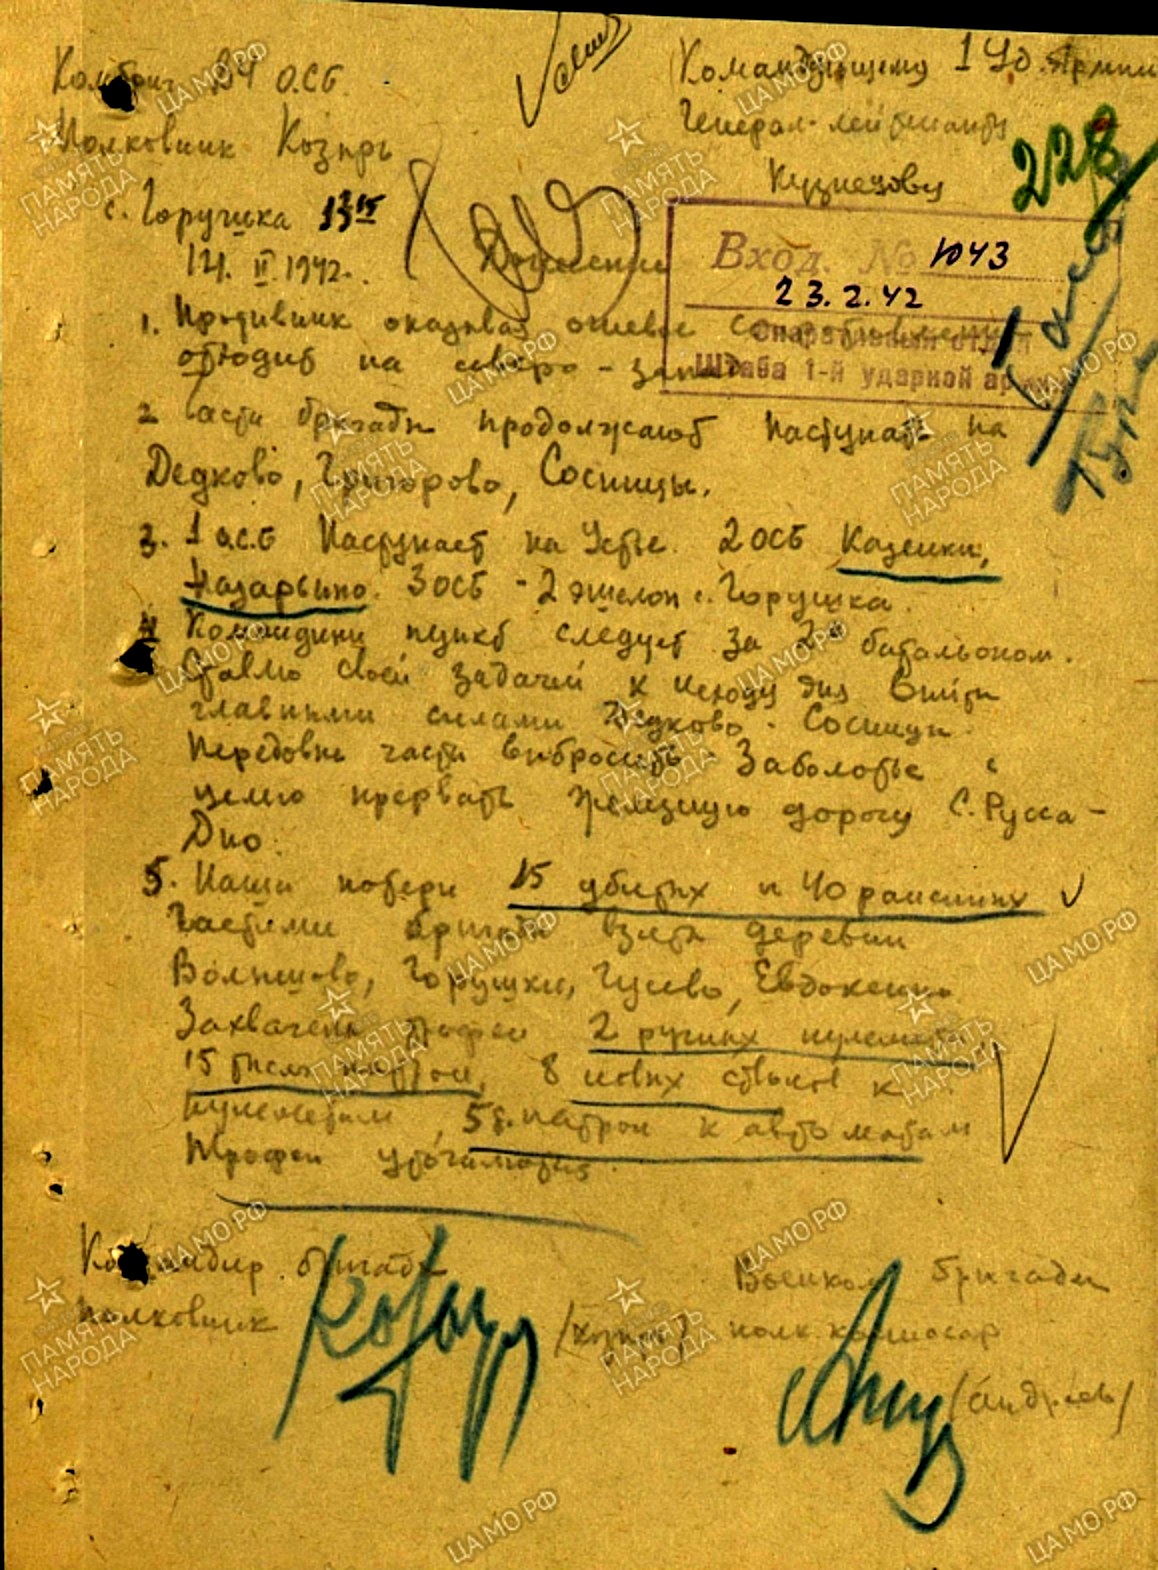 Комбриг 84 О.С.Б.
Командующему 1 Уд. Армии
Полковник Козырь
Генерал-лейтенанту
Кузнецову
228
с. Горушка 13 15
II.1942.
Донесение
Вход. № 1043
23.2.42
Оперативный отдел
Штаба 1-й ударной армии
1. Противник оказывая огневое сопротивление
отходит на северо-запад
2 Части бригады продолжают наступать на
Дедково, Григорово, Сосницы.
3. 1 о.с.б наступает на Устье. 2 ОСБ Казенки,
Назарьино. 3 ОСБ - 2 эшелон с. Горушка.
4 Командный пункт следует за 2м батальоном.
Ставлю своей задачей к исходу дня выйти
главными силами Дедково - Сосницы.
Передовые части выбросить Заболотье с
целью прервать железную дорогу С. Русса -
Дно.
5. Наши потери 15 убитых и 40 раненных
Частями бригады взяты деревни
Волышово, Горушки, Гусево, Евдокеино
Захвачены трофеи 2 ручных пулемета,
15 тысяч патрон, 8 новых стволов к
пулеметам, 5 т. патрон к автоматам
Трофеи уточняются.
Командир бригады
Военком бригады
полковник
Козырь
(Козырь)
полк. комиссар
(Андреев)
ПАМЯТЬ НАРОДА
ЦАМО.РФ